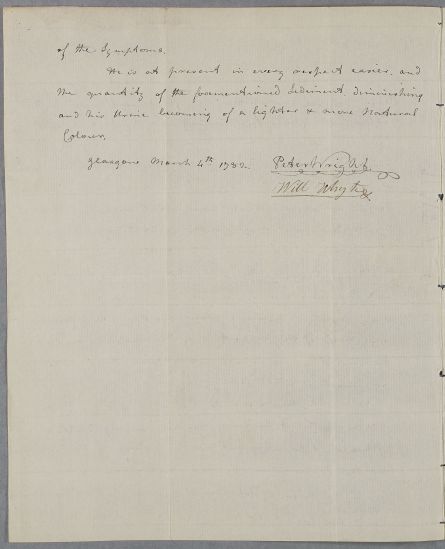 of the Symptoms.
He is at present in every respect easier, and
the quantity of the forementioned Sediment diminishing
and his Urine becoming of a lighter & more Natural
Colour.
Glasgow March 4th 1782. Peter Wright.
Will Whyte